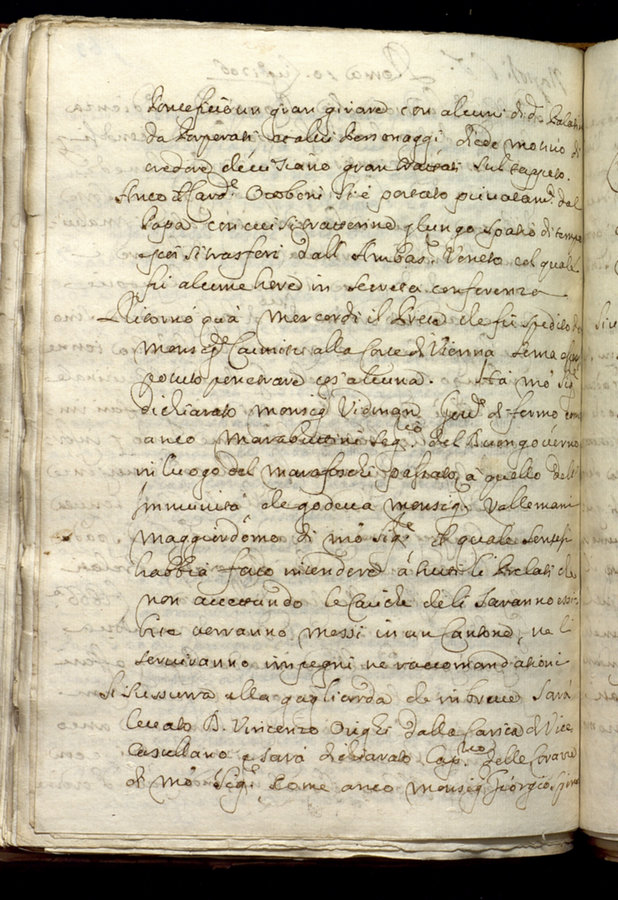 Ponteficio un gran girare con alcuni di d.i Palatin
da Porporati et altri Personaggi diede motivo di
credere che vi siano gran trattati sul tappeto.
Anco il Card.l Ottoboni si è portato privatam.te dal
Papa con cui si trattenne p lungo spatio di tempo
e poi si trasferì dall' Ambas.r Veneto col quale
fù alcune hore in secreta conferenza
Ritornò quà Mercordi il che fù spedito da
Mons.r alla Corte di Vienna senza
potuto penetrare cos' alcuna. Hà Nro Sig.re
dichiarato Monsig.r Vidman Gov.re di Fermo come
anco Marabottini Seg.rio del Buongoverno
in luogo del Marefoschi passato à quello dell'
Immunità che godeva Monsig.r Vallemani
Maggiordomo di Nro Sig.re il quale sentesi
habbia fatto intendere à tutti li Prelati che
non accettando le Cariche che li saranno esi-
bite verranno messi in un Cantone, ne li
serviranno impegni ne raccomandationi
Si sussurra alla gagliarda che in breve sarà
levato D. Vincenzo dalla Carica di Vice
Castellano e sarà dichiarato Cap.no delle Corazze
di Nro Sig.re, come anco Monsig.r Giorgio